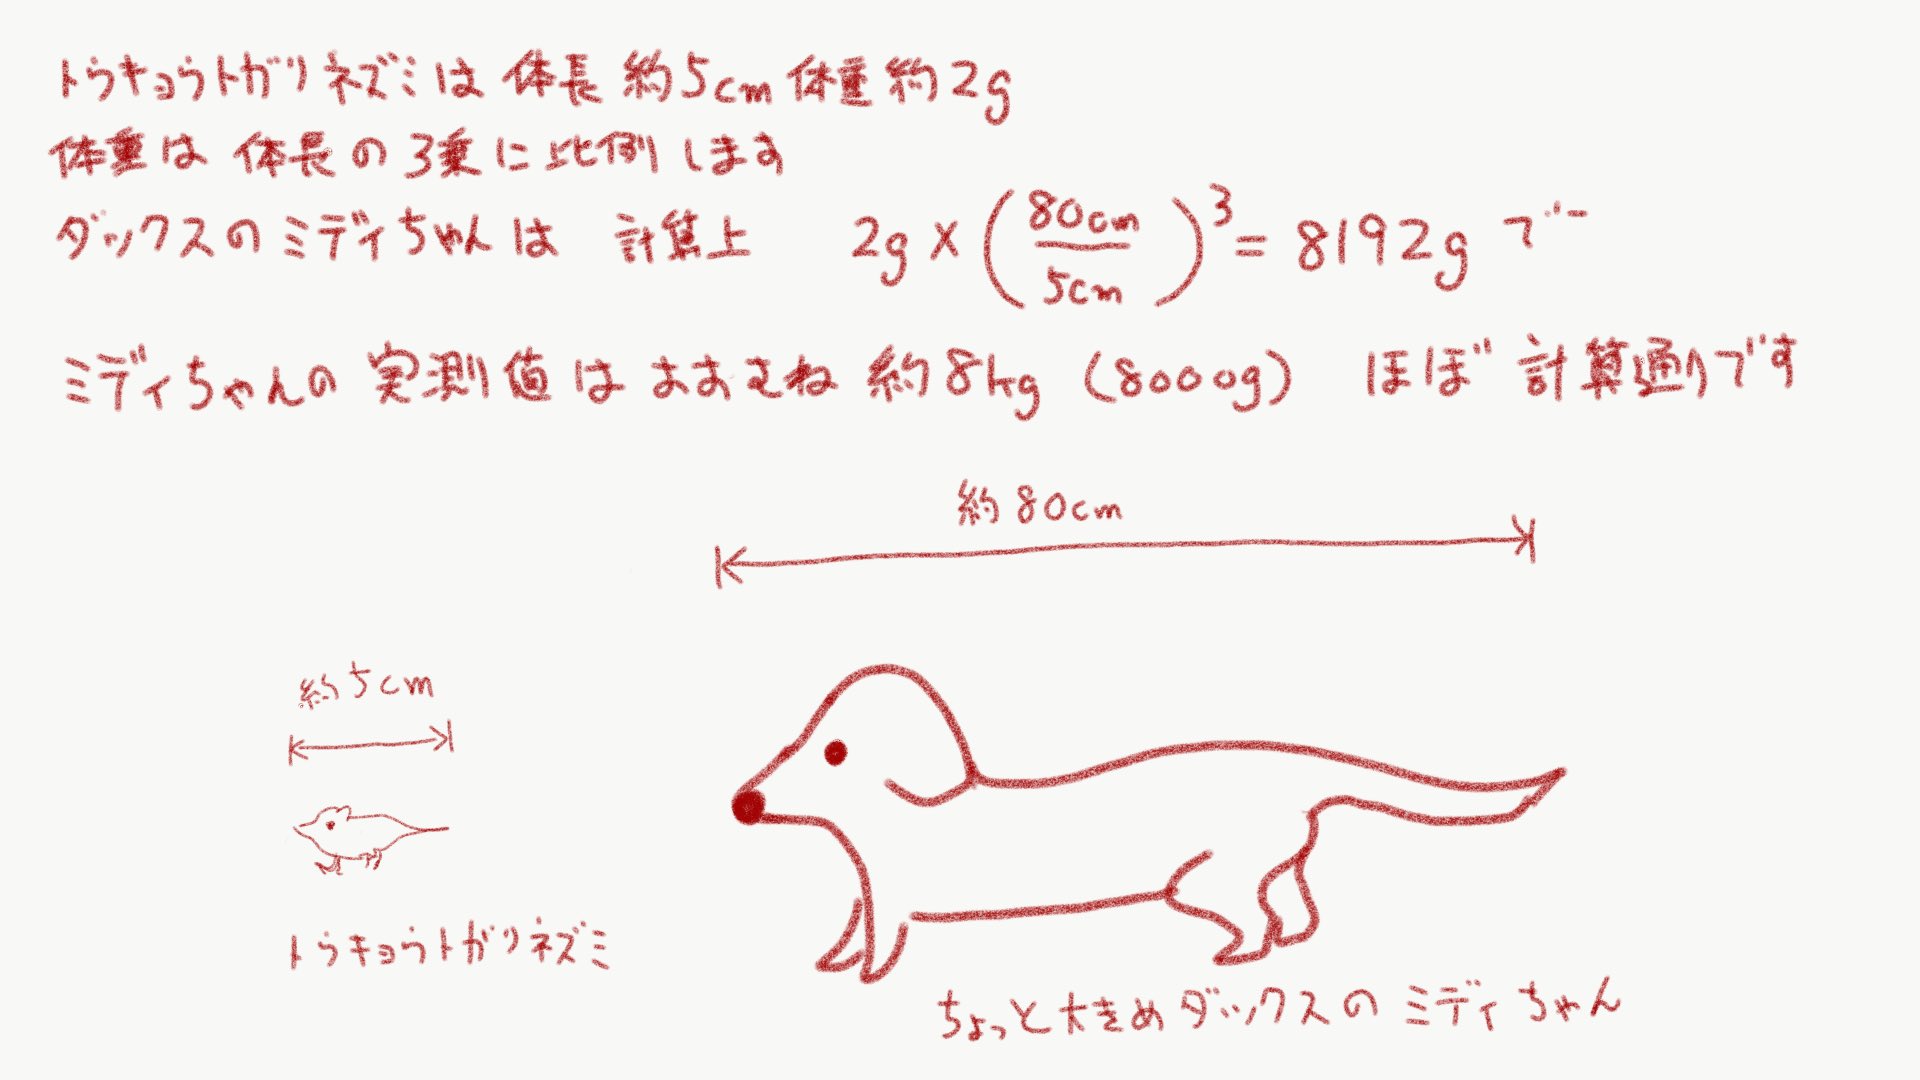 トウキョウトガリネズミは体長約5cm体重約2g
体重は体長の3乗に比例します
ダックスのミディちゃんは 計算上 2g×(80cm/5cm)³=8192gで
ミディちゃんの実測値はおおむね約8kg(8000g) ほぼ計算通りです
約80cm
約5cm
トウキョウトガリネズミ
ちょっと大きめダックスのミディちゃん